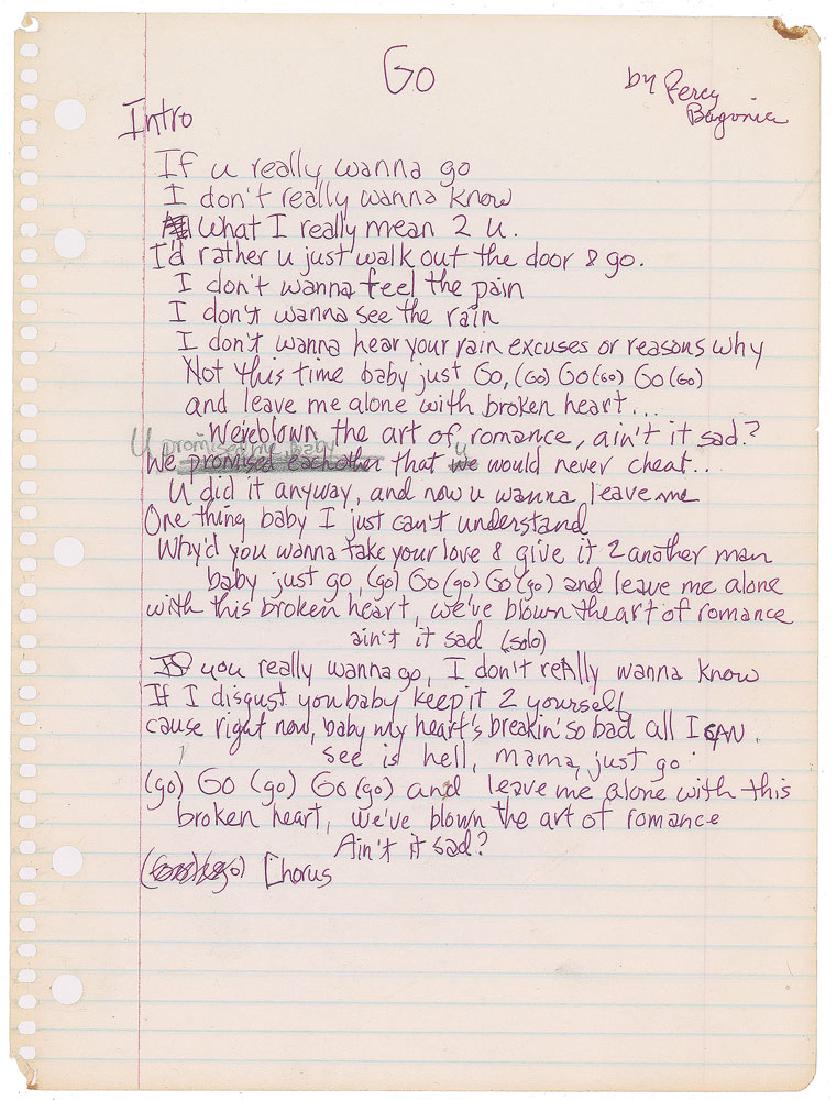 Go
by Percy
Bagonia
Intro
If u really wanna go
I don't really wanna know
What I really mean 2 u.
I'd rather u just walk out the door & go.
I don't wanna feel the pain
I don't wanna see the rain
I don't wanna hear your rain excuses or reasons why
Not this time baby just Go, (Go) Go (Go) Go (Go)
and leave me alone with broken heart...
We've blown the art of romance, ain't it sad?
U promised me baby u
We promised eachother that we would never cheat...
U did it anyway, and now u wanna leave me
One thing baby I just can't understand
Why'd you wanna take your love & give it 2 another man
baby just go, (go) Go (go) Go (go) and leave me alone
with this broken heart, we've blown the art of romance
ain't it sad (solo)
If you really wanna go, I don't really wanna know
If I disgust you baby keep it 2 yourself
cause right now, baby my heart's breakin' so bad all I CAN
see is hell, mama, just go
(go) Go (go) Go (go) and leave me alone with this
broken heart, we've blown the art of romance
Ain't it sad?
Chorus